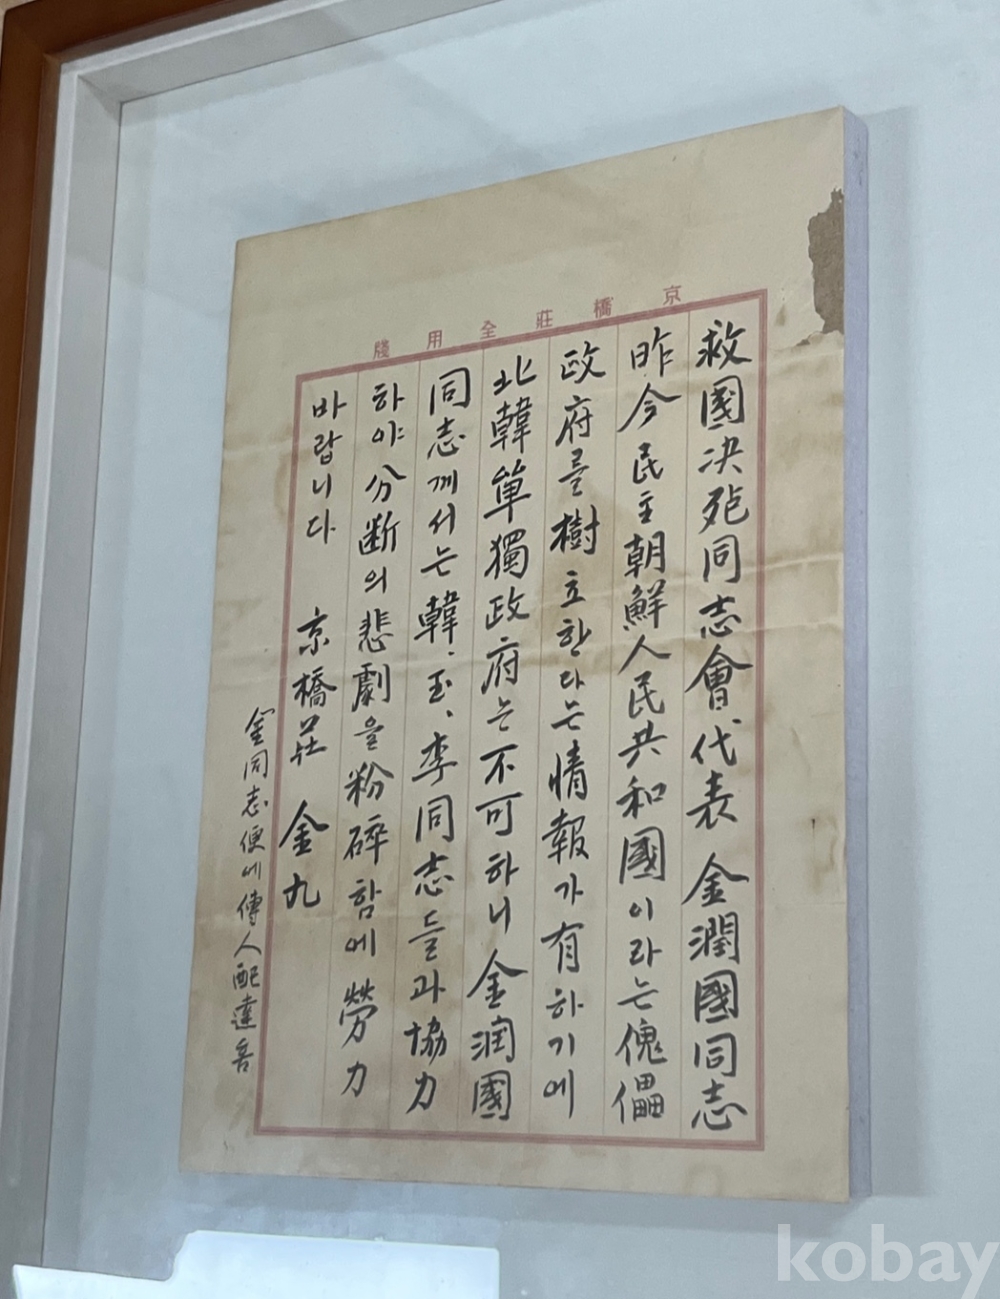 京橋莊全用牋
救國决死同志會代表 金潤國同志
昨今民主朝鮮人民共和國이라는傀儡
政府를樹立한다는情報가有하기에
北韓単獨政府는不可하니金潤國
同志께서는韓、玉、李同志들과協力
하야分断의悲劇을粉碎함에勞力
바랍니다 京橋莊 金九
金同志便에傳人配達
kobay